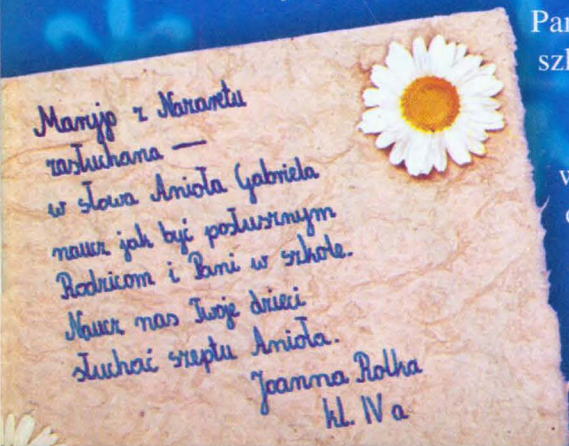 Maryjo z Nazaretu
zasłuchana —
w słowa Anioła Gabriela
naucz jak być posłusznym
Rodzicom i Pani w szkole.
Naucz nas Twoje dzieci
słuchać szeptu Anioła.
Joanna Rolka
kl. IV a